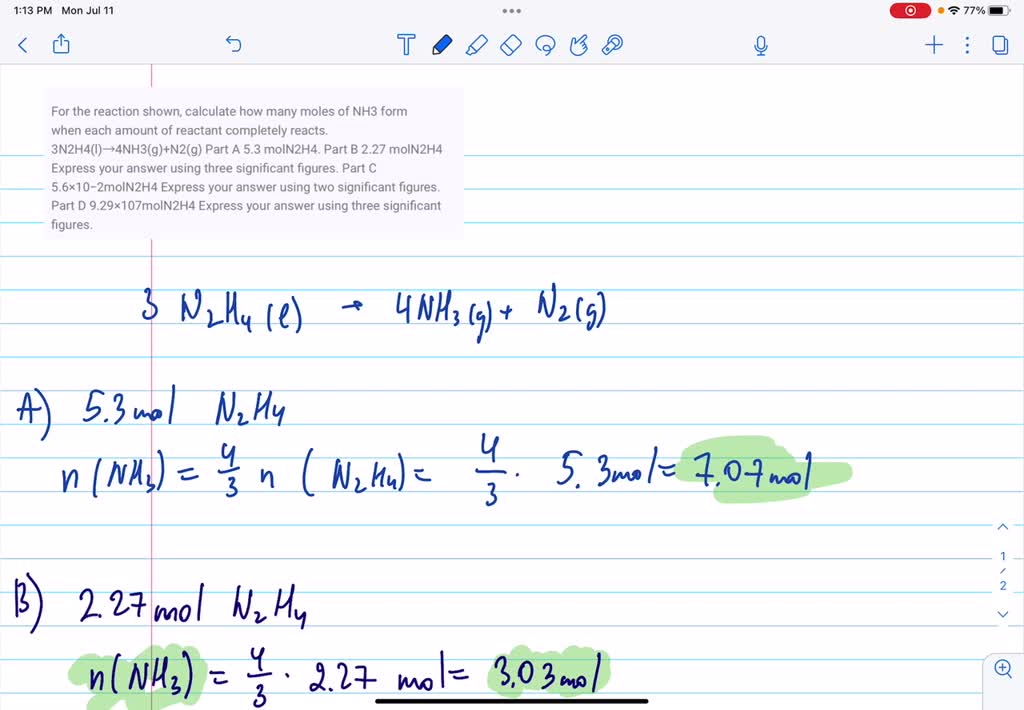 1:13 PM Mon Jul 11
77%
For the reaction shown, calculate how many moles of NH3 form
when each amount of reactant completely reacts.
3N2H4(l)→4NH3(g)+N2(g) Part A 5.3 molN2H4. Part B 2.27 molN2H4
Express your answer using three significant figures. Part C
5.6×10−2molN2H4 Express your answer using two significant figures.
Part D 9.29×107molN2H4 Express your answer using three significant
figures.
3 N₂H₄(l) → 4NH₃(g) + N₂(g)
A) 5.3 mol N₂H₄
n(NH₃) = 4/3 n (N₂H₄) = 4/3 · 5.3mol = 7.07 mol
1
/
2
B) 2.27 mol N₂H₄
n(NH₃) = 4/3 · 2.27 mol = 3.03 mol